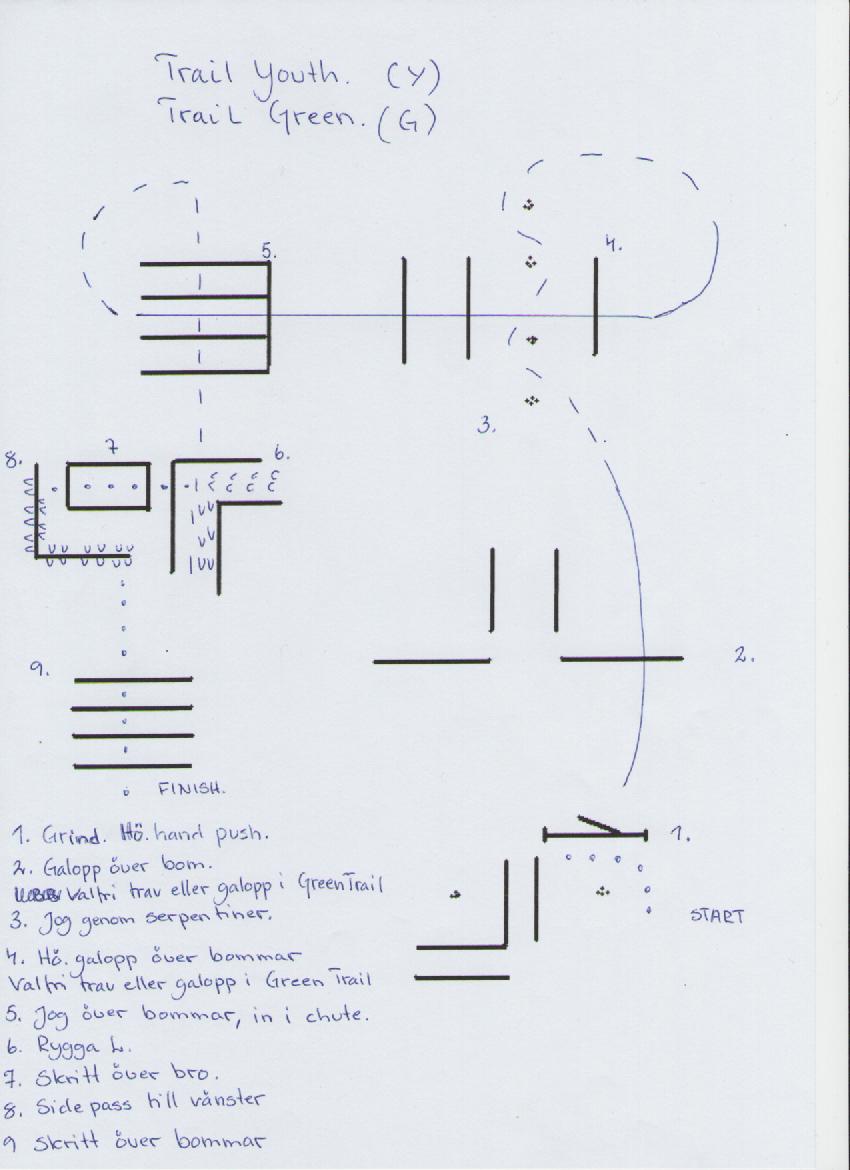 Trail Youth. (Y)
Trail Green. (G)
5.
4.
3.
8.
7
6.
2.
9.
FINISH.
1.
START
1. Grind. Hö. hand push.
2. Galopp över bom.
Valfri trav eller galopp i Green Trail
3. Jog genom serpentiner.
4. Hö. galopp över bommar
Valfri trav eller galopp i Green Trail
5. Jog över bommar, in i chute.
6. Rygga L.
7. Skritt över bro.
8. Side pass till vänster
9 Skritt över bommar